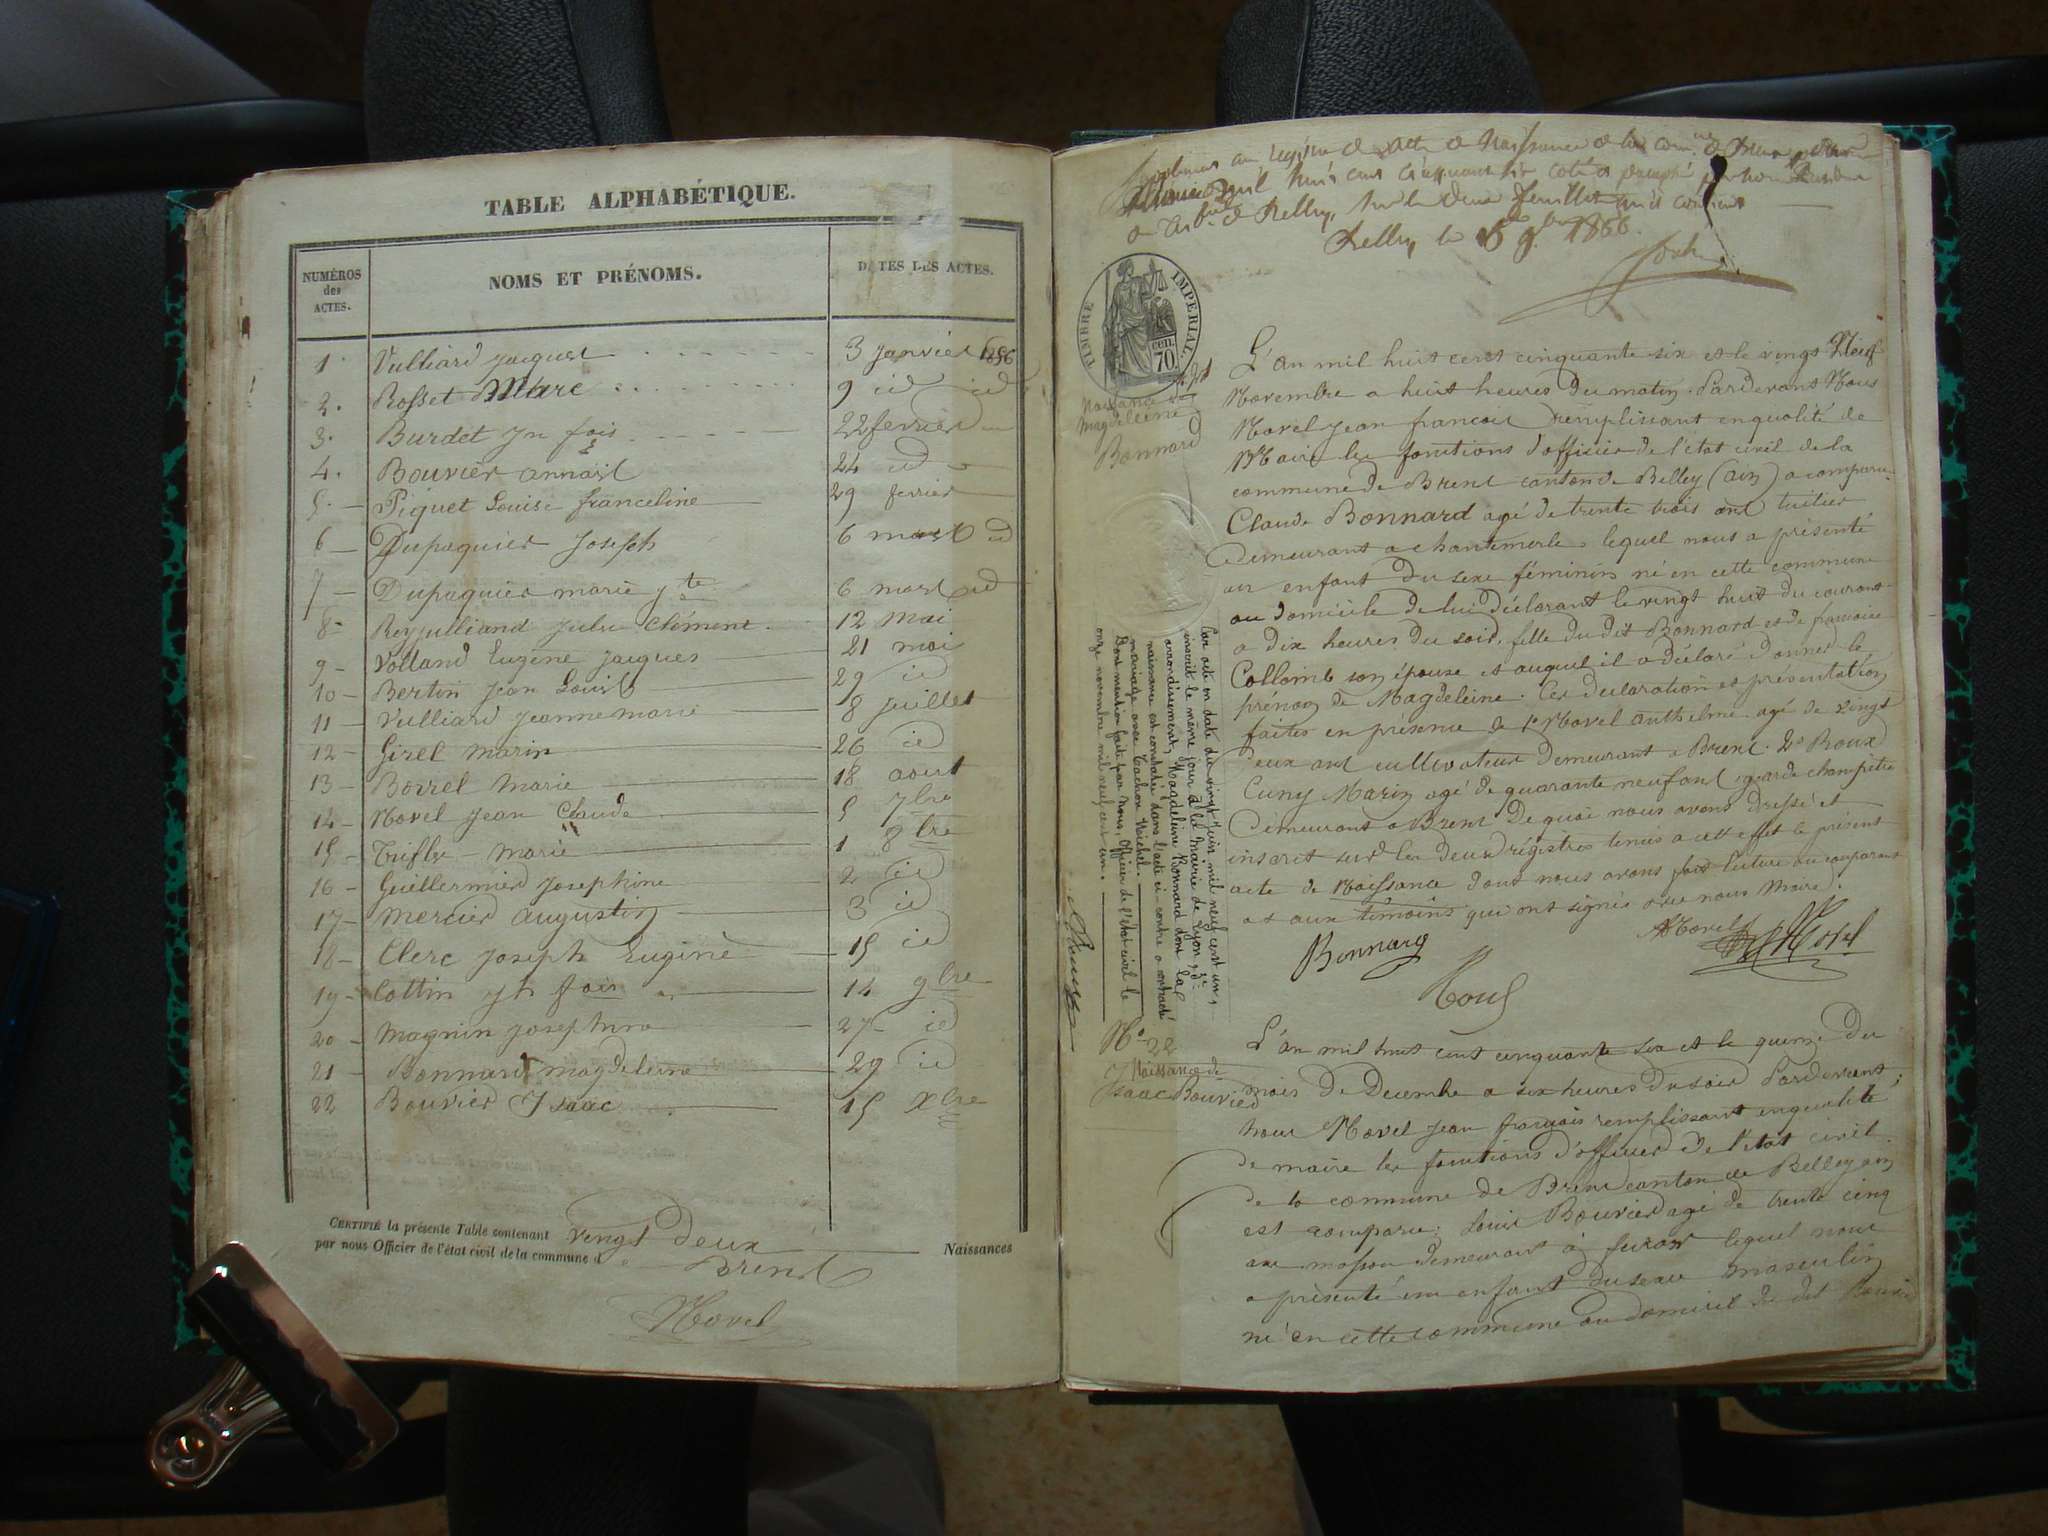 TABLE ALPHABÉTIQUE.
NUMÉROS des ACTES.
NOMS ET PRÉNOMS.
DATES DES ACTES.
1 Vulliard Jacques 3 janvier 1856
2 Rosset Marc 9 id id
3 Burdet Jn fois 22 fevrier
4 Bouvier annaïs 24 id
5 Piquet Louise franceline 29 fevrier
6 Dupaquier Joseph 6 mars id
7 Dupaquier marie jte 6 mars id
8 Reyjulliand Jules Clément 12 Mai
9 Volland Eugène Jacques 21 mai
10 Bertin Jean Louis 29 id
11 Vulliard Jeanne marie 8 juillet
12 Girel marin 26 id
13 Borrel Marie 18 aout
14 Novel Jean Claude 5 7bre
15 Marie 1 8bre
16 Guillermier Josephine 2 id
17 Mercier augustin 3 id
18 Clerc Joseph Eugène 15 id
19 Cottin Jh fois 14 9bre
20 Magnin Josephine 27 id
21 Bonnard magdeleine 29 id
22 Bouvier Isaac 15 Xbre
CERTIFIÉ la présente Table contenant vingt deux Naissances
par nous Officier de l'état civil de la commune d Brens
Novel
Belley, le 1856.
TIMBRE IMPERIAL
70 cen.
N° 21
Naissance de
Magdeleine
Bonnard
L'an mil huit cent cinquante six et le vingt Neuf
Novembre a huit heures du matin. Pardevant Nous
Novel Jean francois remplissant en qualité de
Maire les fonctions d'officier de l'état civil de la
commune de Brens canton de Belley (ain) a comparu
Claude Bonnard agé de trente trois ans tuilier
demeurant a chantemerle lequel nous a présenté
un enfant du sexe féminin né en cette commune
au domicile de lui déclarant le vingt huit du courant
a dix heures du soir, fille du dit Bonnard et de francoise
Collomb son épouse et auquel il a déclaré donner le
prénom de Magdeleine. Ces declaration et présentation
faites en présence de 1° Novel anthelme agé de vingt
deux ans cultivateur demeurant a Brens. 2° Roux
Cuny Marin agé de quarante neuf ans garde champêtre
demeurant a Brens De quoi nous avons dressé et
inscrit sur les deux régistres tenus a cet effet le présent
acte de Naissance dont nous avons fait lecture au comparant
et aux témoins qui ont signés avec nous Maire.
Bonnard
Novel
Novel
Roux
Par acte en date du vingt juin mil neuf cent un,
inscrit le même jour à la Mairie de Lyon, 3e
arrondissement, Magdeleine Bonnard dont la
naissance est constatée dans l'acte ci-contre a contracté
mariage avec Michel.
Dont mention faite par nous, Officier de l'état civil le
onze novembre mil neuf cent un.
N° 22
Naissance de
Isaac Bouvier
L'an mil huit cent cinquante six et le quinze du
mois de Decembre a six heures du soir Pardevant
nous Novel Jean francois remplissant en qualité
de maire les fonctions d'officier de l'état civil
de la commune de Brens canton de Belley ain
est comparu Louis Bouvier agé de trente cinq
ans masson demeurant à lequel nous
a présenté un enfant du sexe masculin
né en cette commune au domicile du dit Bouvier